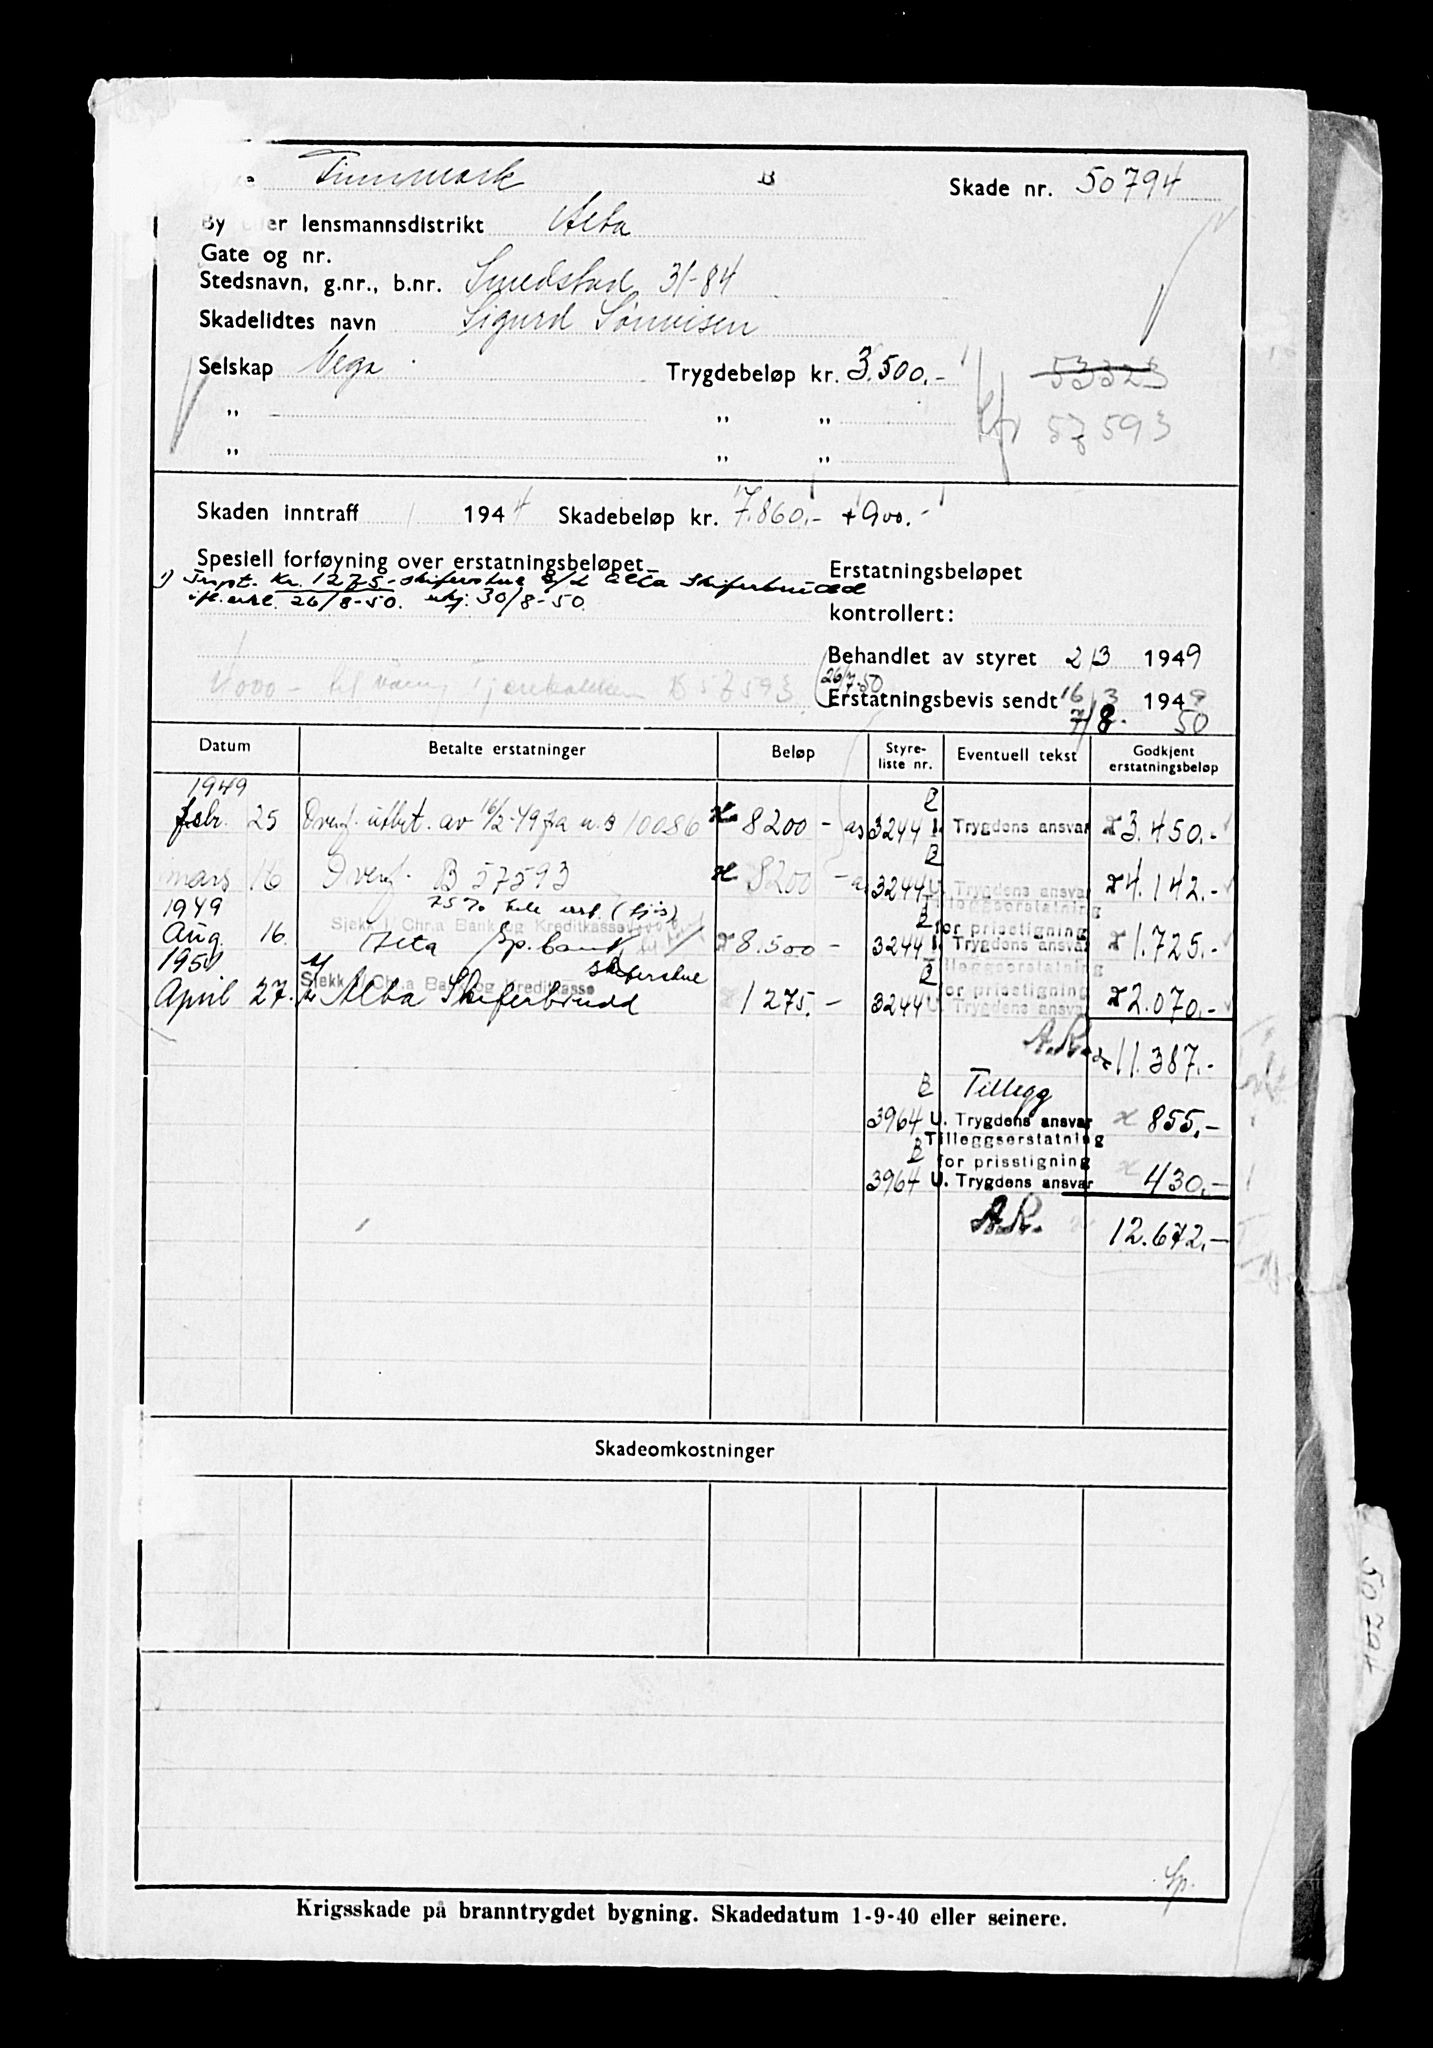 Finnmark B Skade nr. 50794
By eller lensmannsdistrikt Alta
Gate og nr.
Stedsnavn, g.nr., b.nr. Smedstad 31-84
Skadelidtes navn Sigurd
Selskap Vega Trygdebeløp kr. 3.500.- 53323
„ „ „ 57593
„ „ „
Skaden inntraff 1944 Skadebeløp kr. 7.860.- + 900.-
Spesiell forføyning over erstatningsbeløpet Erstatningsbeløpet
1) Kr. 1275.- Alta Skiferbrudd
26/8-50. 30/8-50. kontrollert:
Behandlet av styret 2/3 1949
4000 - til B 57593 26/7.50
Erstatningsbevis sendt 16/3 1949
7/8. 50
Datum Betalte erstatninger Beløp Styre-liste nr. Eventuell tekst Godkjent erstatningsbeløp
1949 B
febr. 25 Overf. utbet. av 16/2-49 fra 10086 8200 - 3244 Trygdens ansvar 3.450.-
B
mars 16 Overf. B 57593 8200 - 3244 U. Trygdens ansvar 4.142.-
1949 75% Tilleggserstatning
Sjekk Chr.a Bank og Kreditkasse B for prisstigning
Aug. 16. Alta Sp.bank 8.500 - 3244 Trygdens ansvar 1.725.-
1950 B Tilleggserstatning
Sjekk Chr.a Bank og Kreditkasse for prisstigning
April 27. Alta Skiferbrudd 1275.- 3244 U. Trygdens ansvar 2.070.-
A.R. 11.387.-
B Tillegg
3964 U. Trygdens ansvar 855.-
Tilleggserstatning
B for prisstigning
3964 U. Trygdens ansvar 430.-
A.R. 12.672.-
Skadeomkostninger
50794
Sp.
Krigsskade på branntrygdet bygning. Skadedatum 1-9-40 eller seinere.